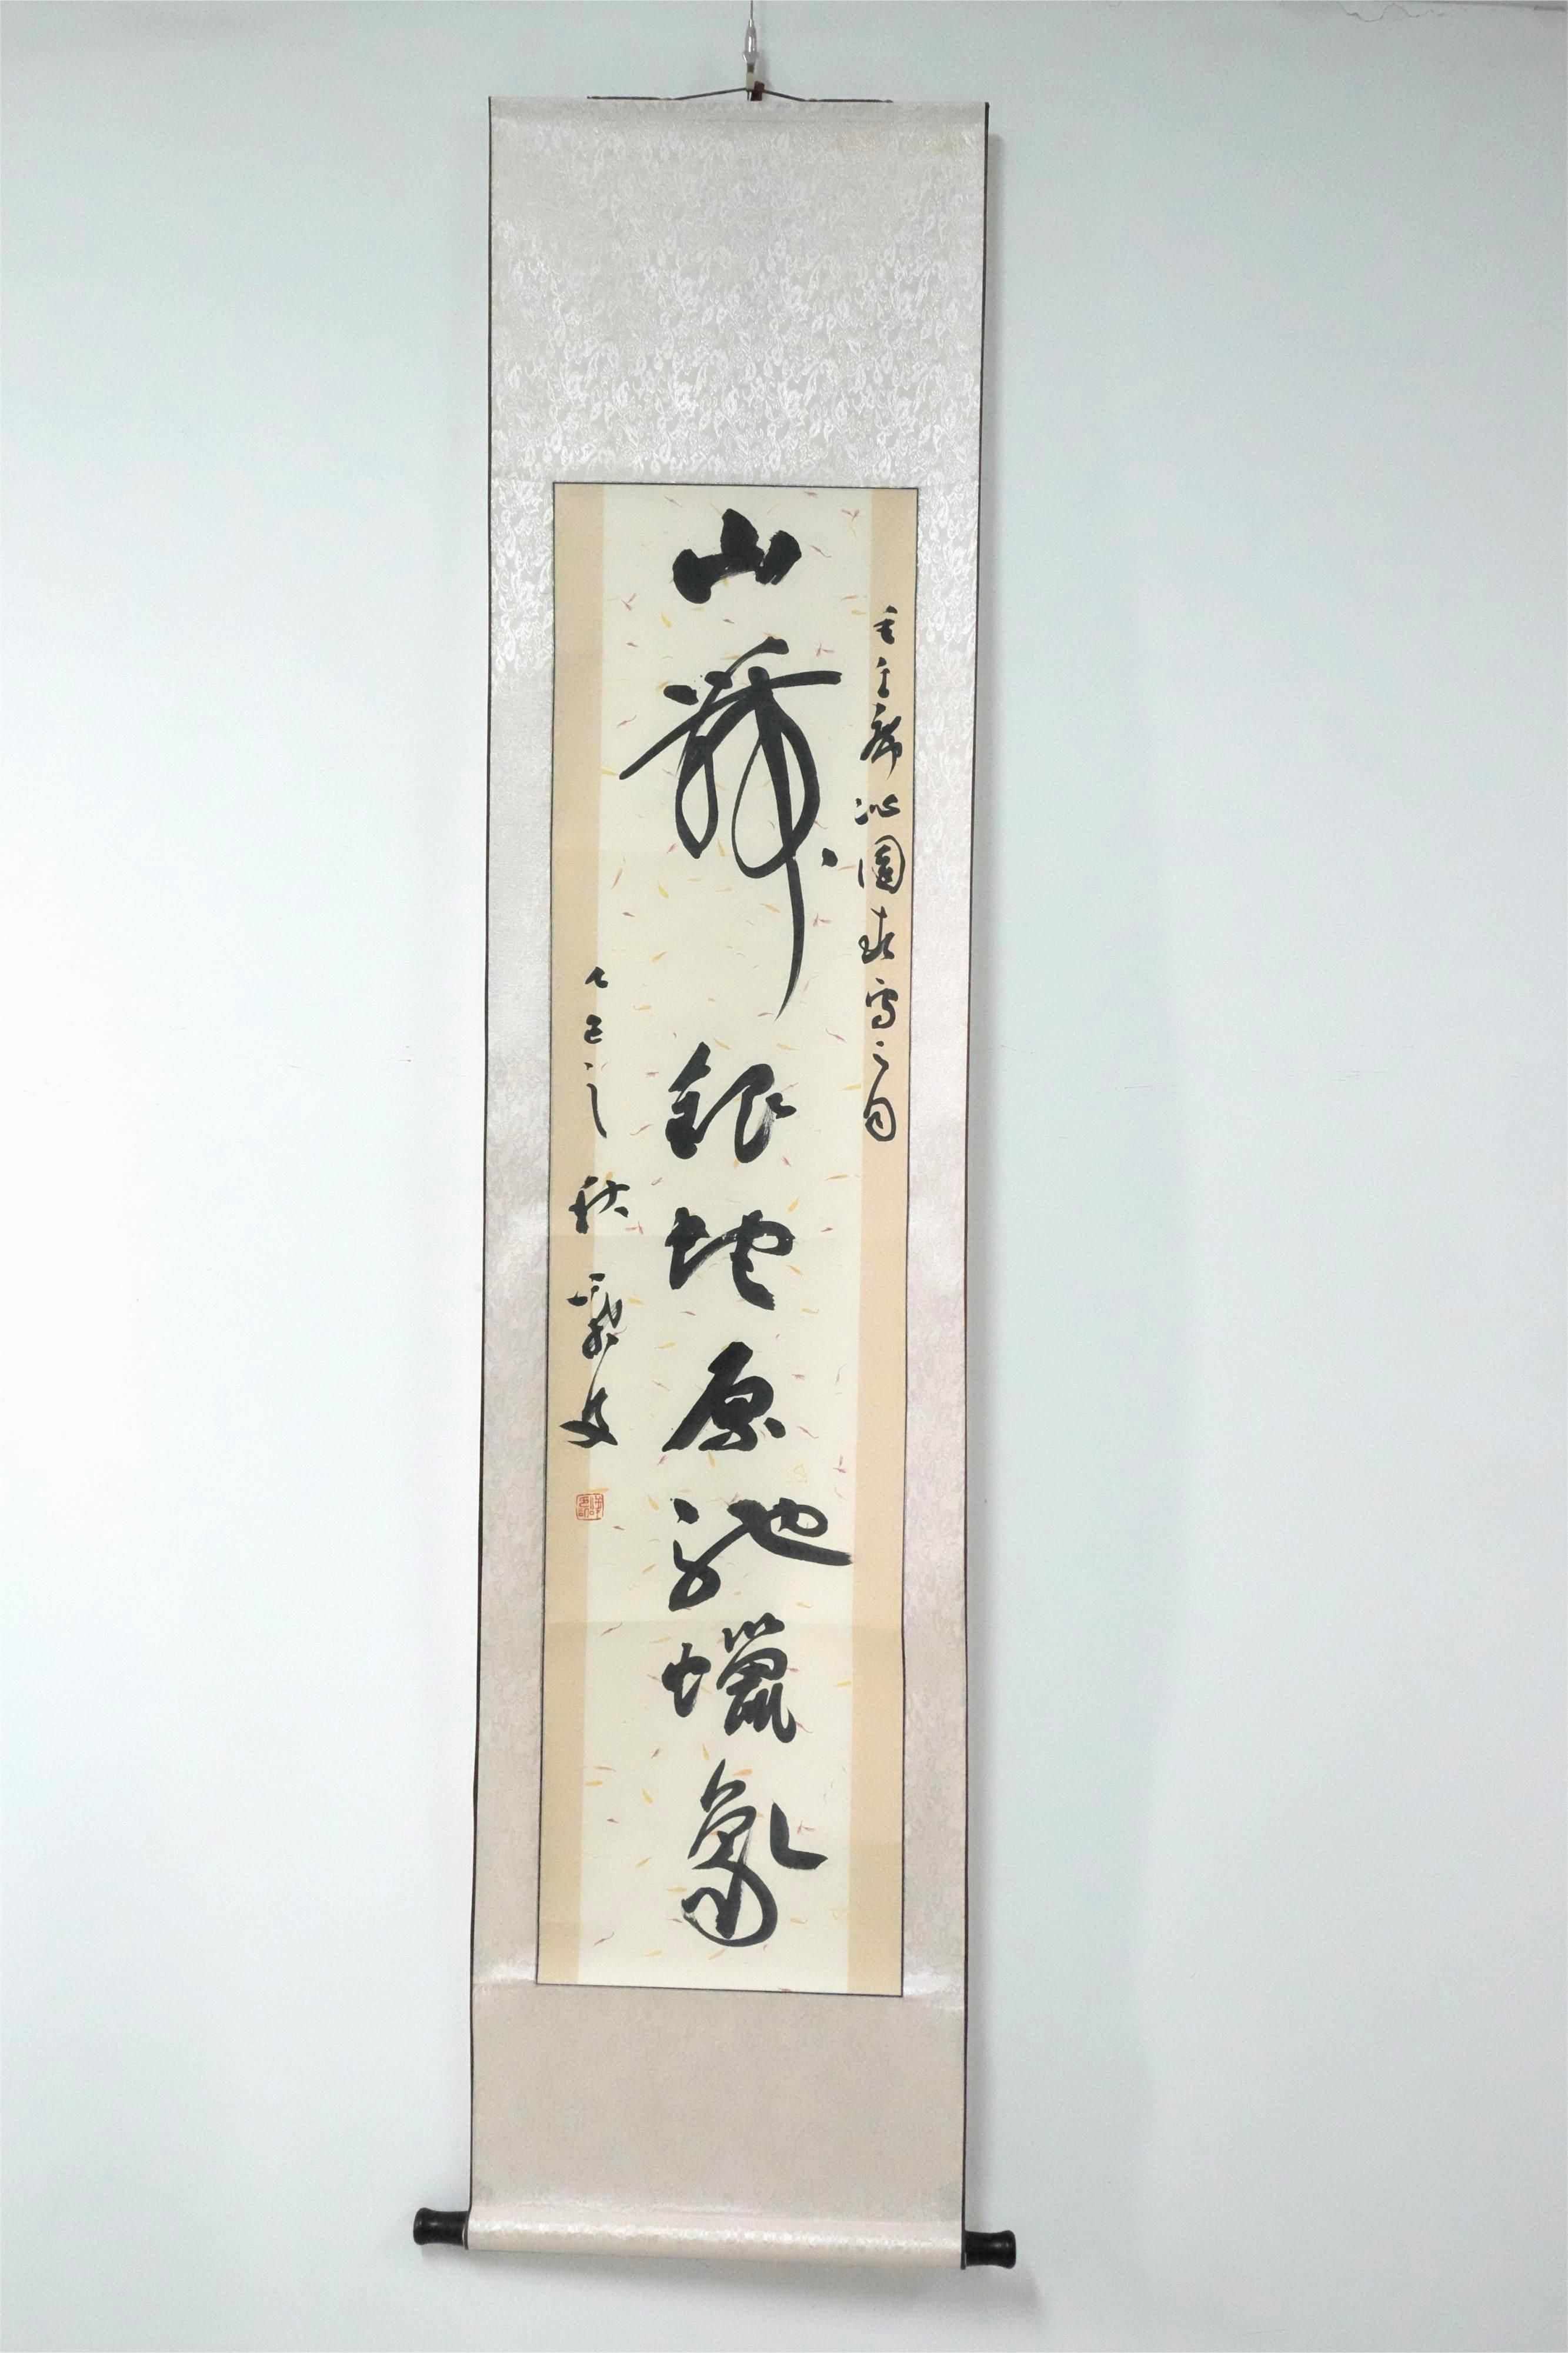 毛主席沁園春雪之句
山舞銀蛇原馳蠟象
乙巳之秋